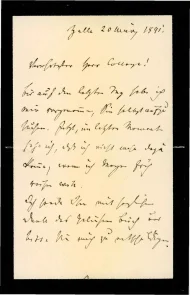 Halle 20 März 1891.
Verehrter Herr College!
bis auf den letzten Tag habe ich
mir vorgenommen, Sie selbst aufzu
suchen. Jetzt, im letzten Moment
sehe ich, daß ich nicht mehr dazu
komme, wenn ich Morgen früh
reisen will.
Ich sende Ihnen mit herzlichem
Dank das geliehene Buch und
bitte Sie mich zu entschuldigen